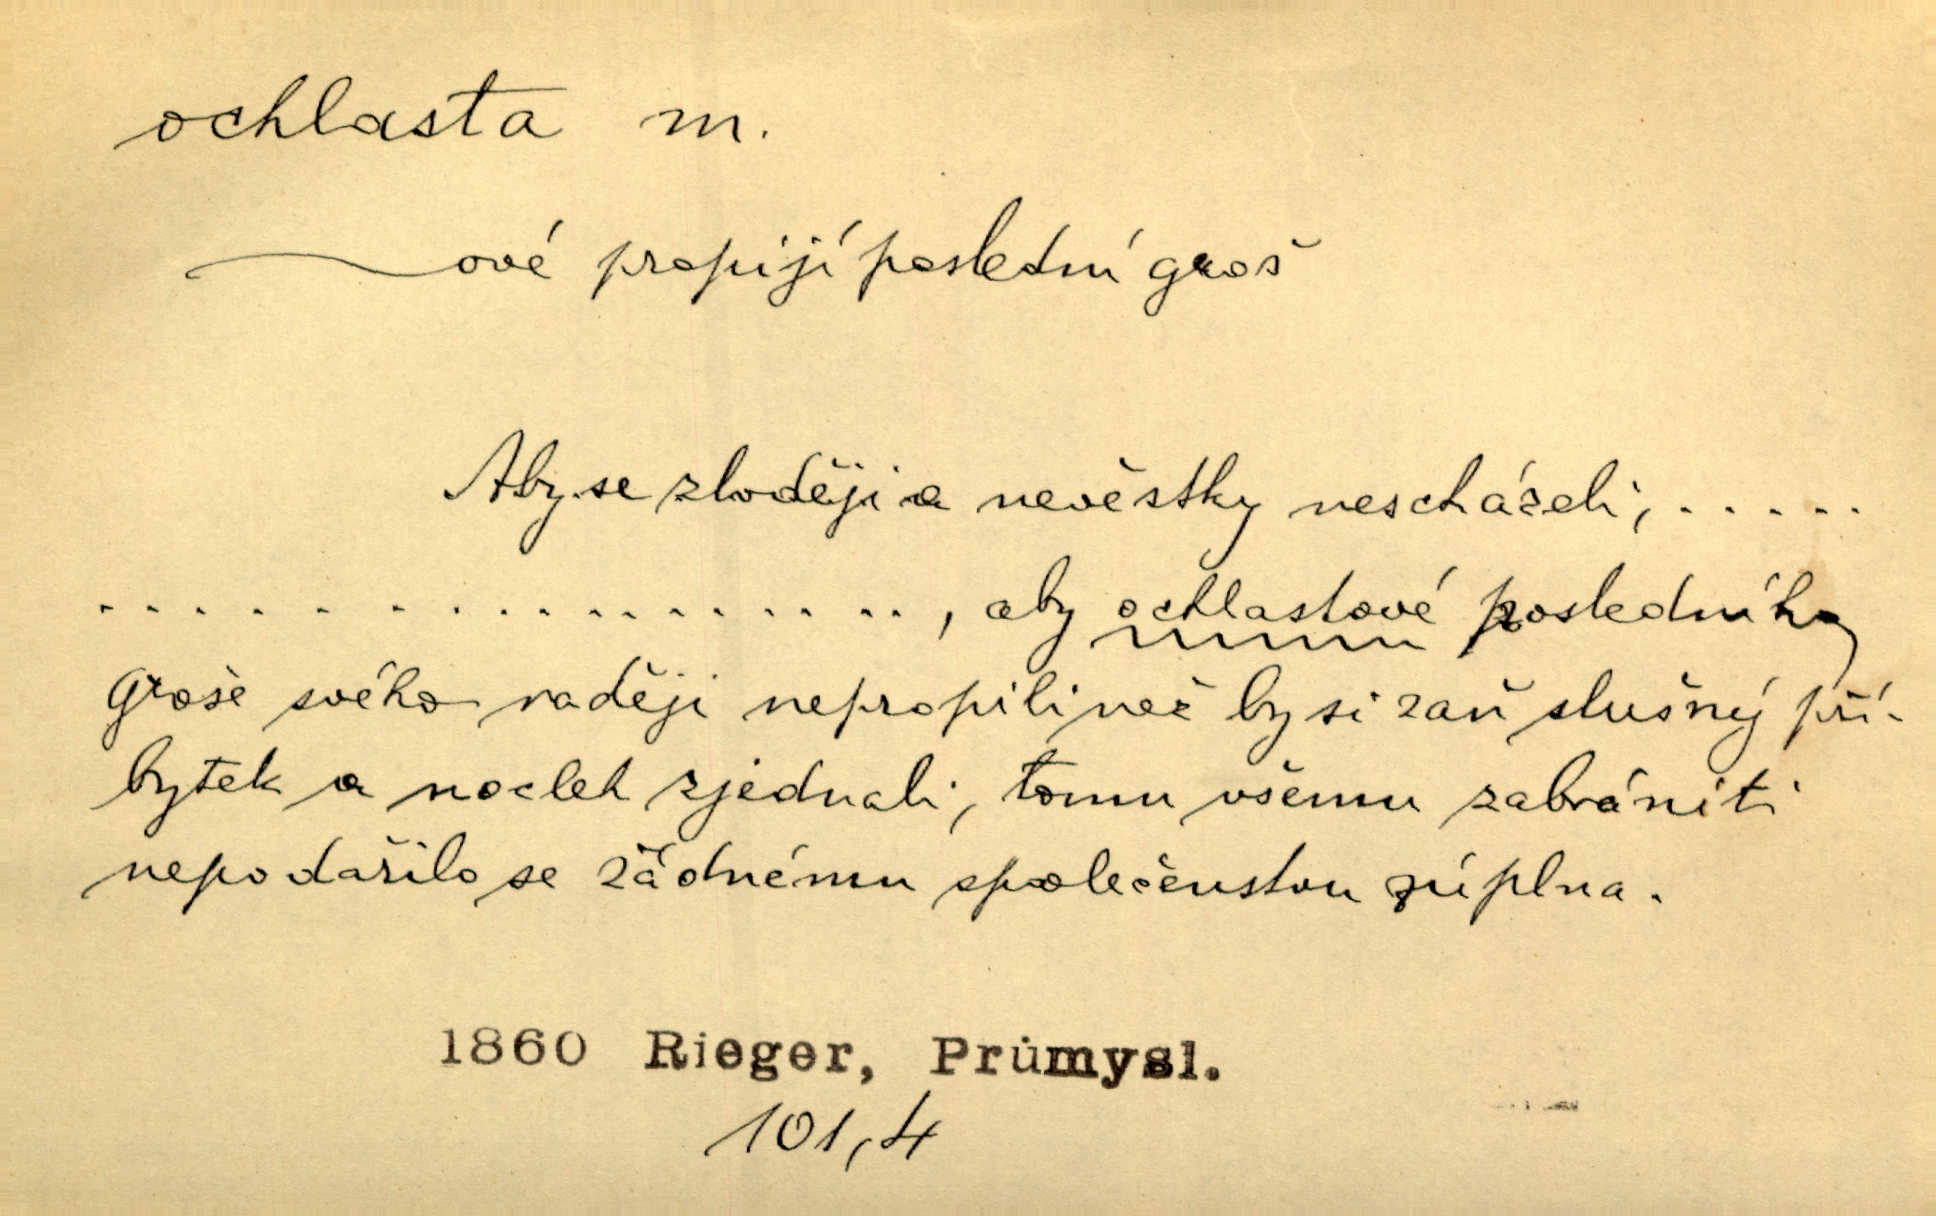 ochlasta m.
ové propijí poslední groš
Aby se zloději a nevěstky nescházeli, . . . . .
. . . . . . . . . . . . . . . . . , aby ochlastové posledního
groše svého raději nepropili než by si zaň slušný pří-
bytek a nocleh zjednali, tomu všemu zabrániti
nepodařilo se žádnému společenstvu zúplna.
1860 Rieger, Průmysl.
101,4